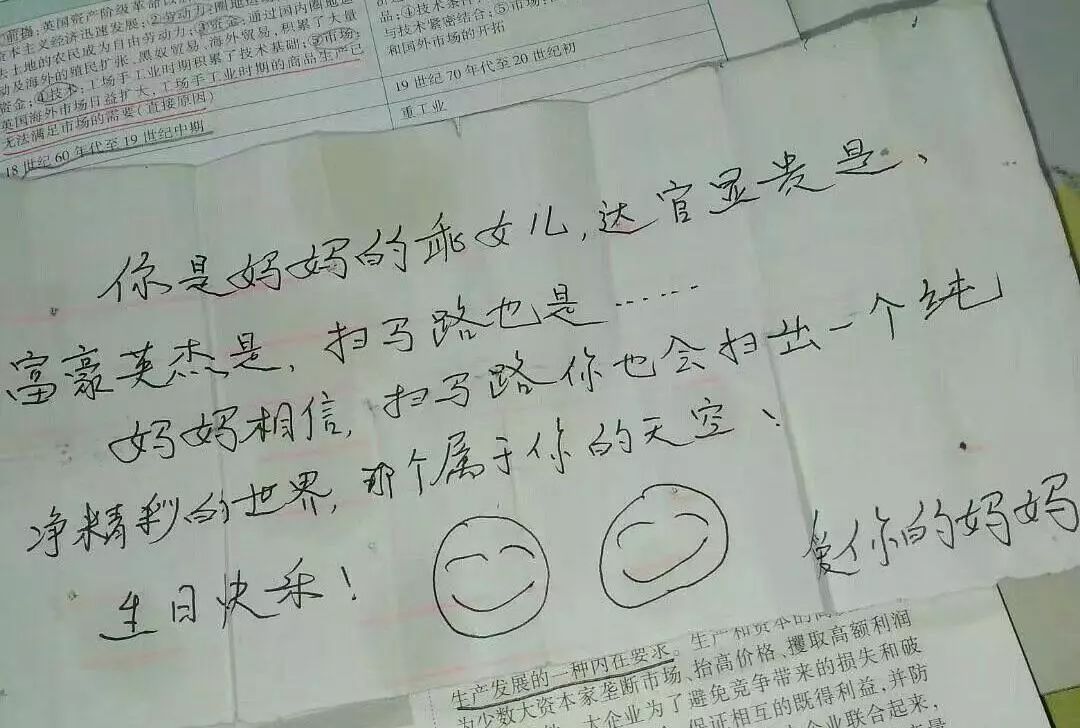 前提：英国资产阶级革命
本主义经济迅速发展；②劳动力：圈地运
去土地的农民成为自由劳动力；③资金：通过国内圈地运
动及海外的殖民扩张、黑奴贸易、海外贸易，积累了大量
资金；④技术：工场手工业时期积累了技术基础；⑤市场：
英国海外市场日益扩大，工场手工业时期的商品生产已
无法满足市场的需要（直接原因）
18世纪60年代至19世纪中期
品；④技术条件
与技术紧密结合；⑤市场：
和国外市场的开拓
19世纪70年代至20世纪初
重工业
你是妈妈的乖女儿，达官显贵是、
富豪英杰是，扫马路也是……
妈妈相信，扫马路你也会扫出一个纯
净精彩的世界，那个属于你的天空！
生日快乐！
爱你的妈妈
生产发展的一种内在要求。生产和资本的
为少数大资本家垄断市场、抬高价格、攫取高额利润
大企业为了避免竞争带来的损失和破
保证相互的既得利益，并防
企业联合起来，